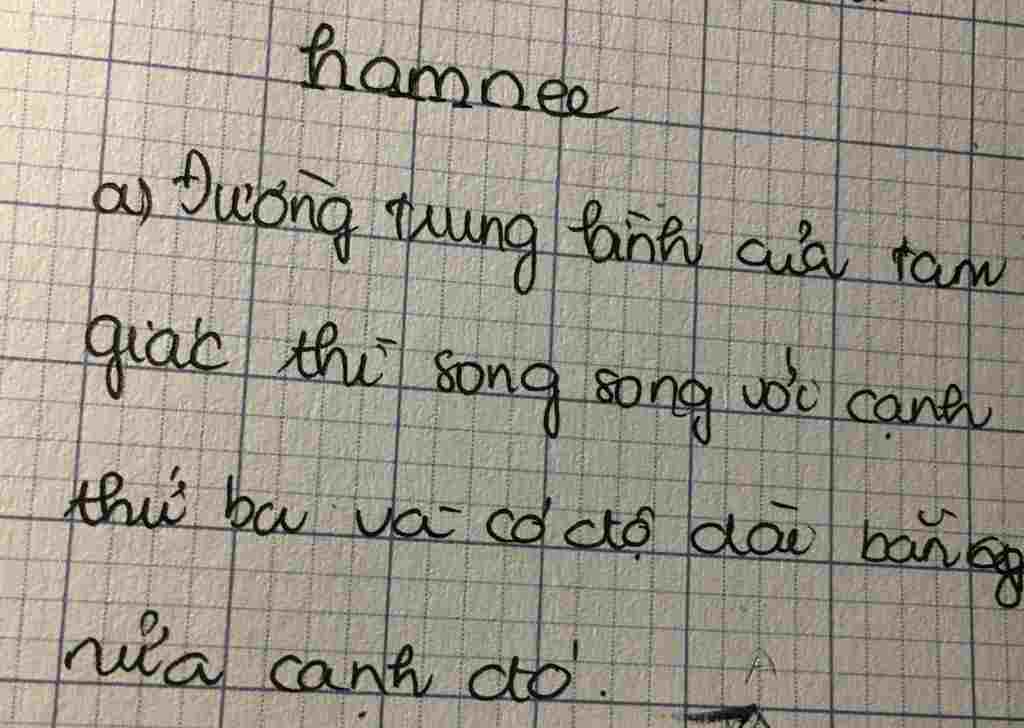 hamnee
a) Đường trung bình của tam
giác thì song song với cạnh
thứ ba và có độ dài bằng
nửa cạnh đó.
A